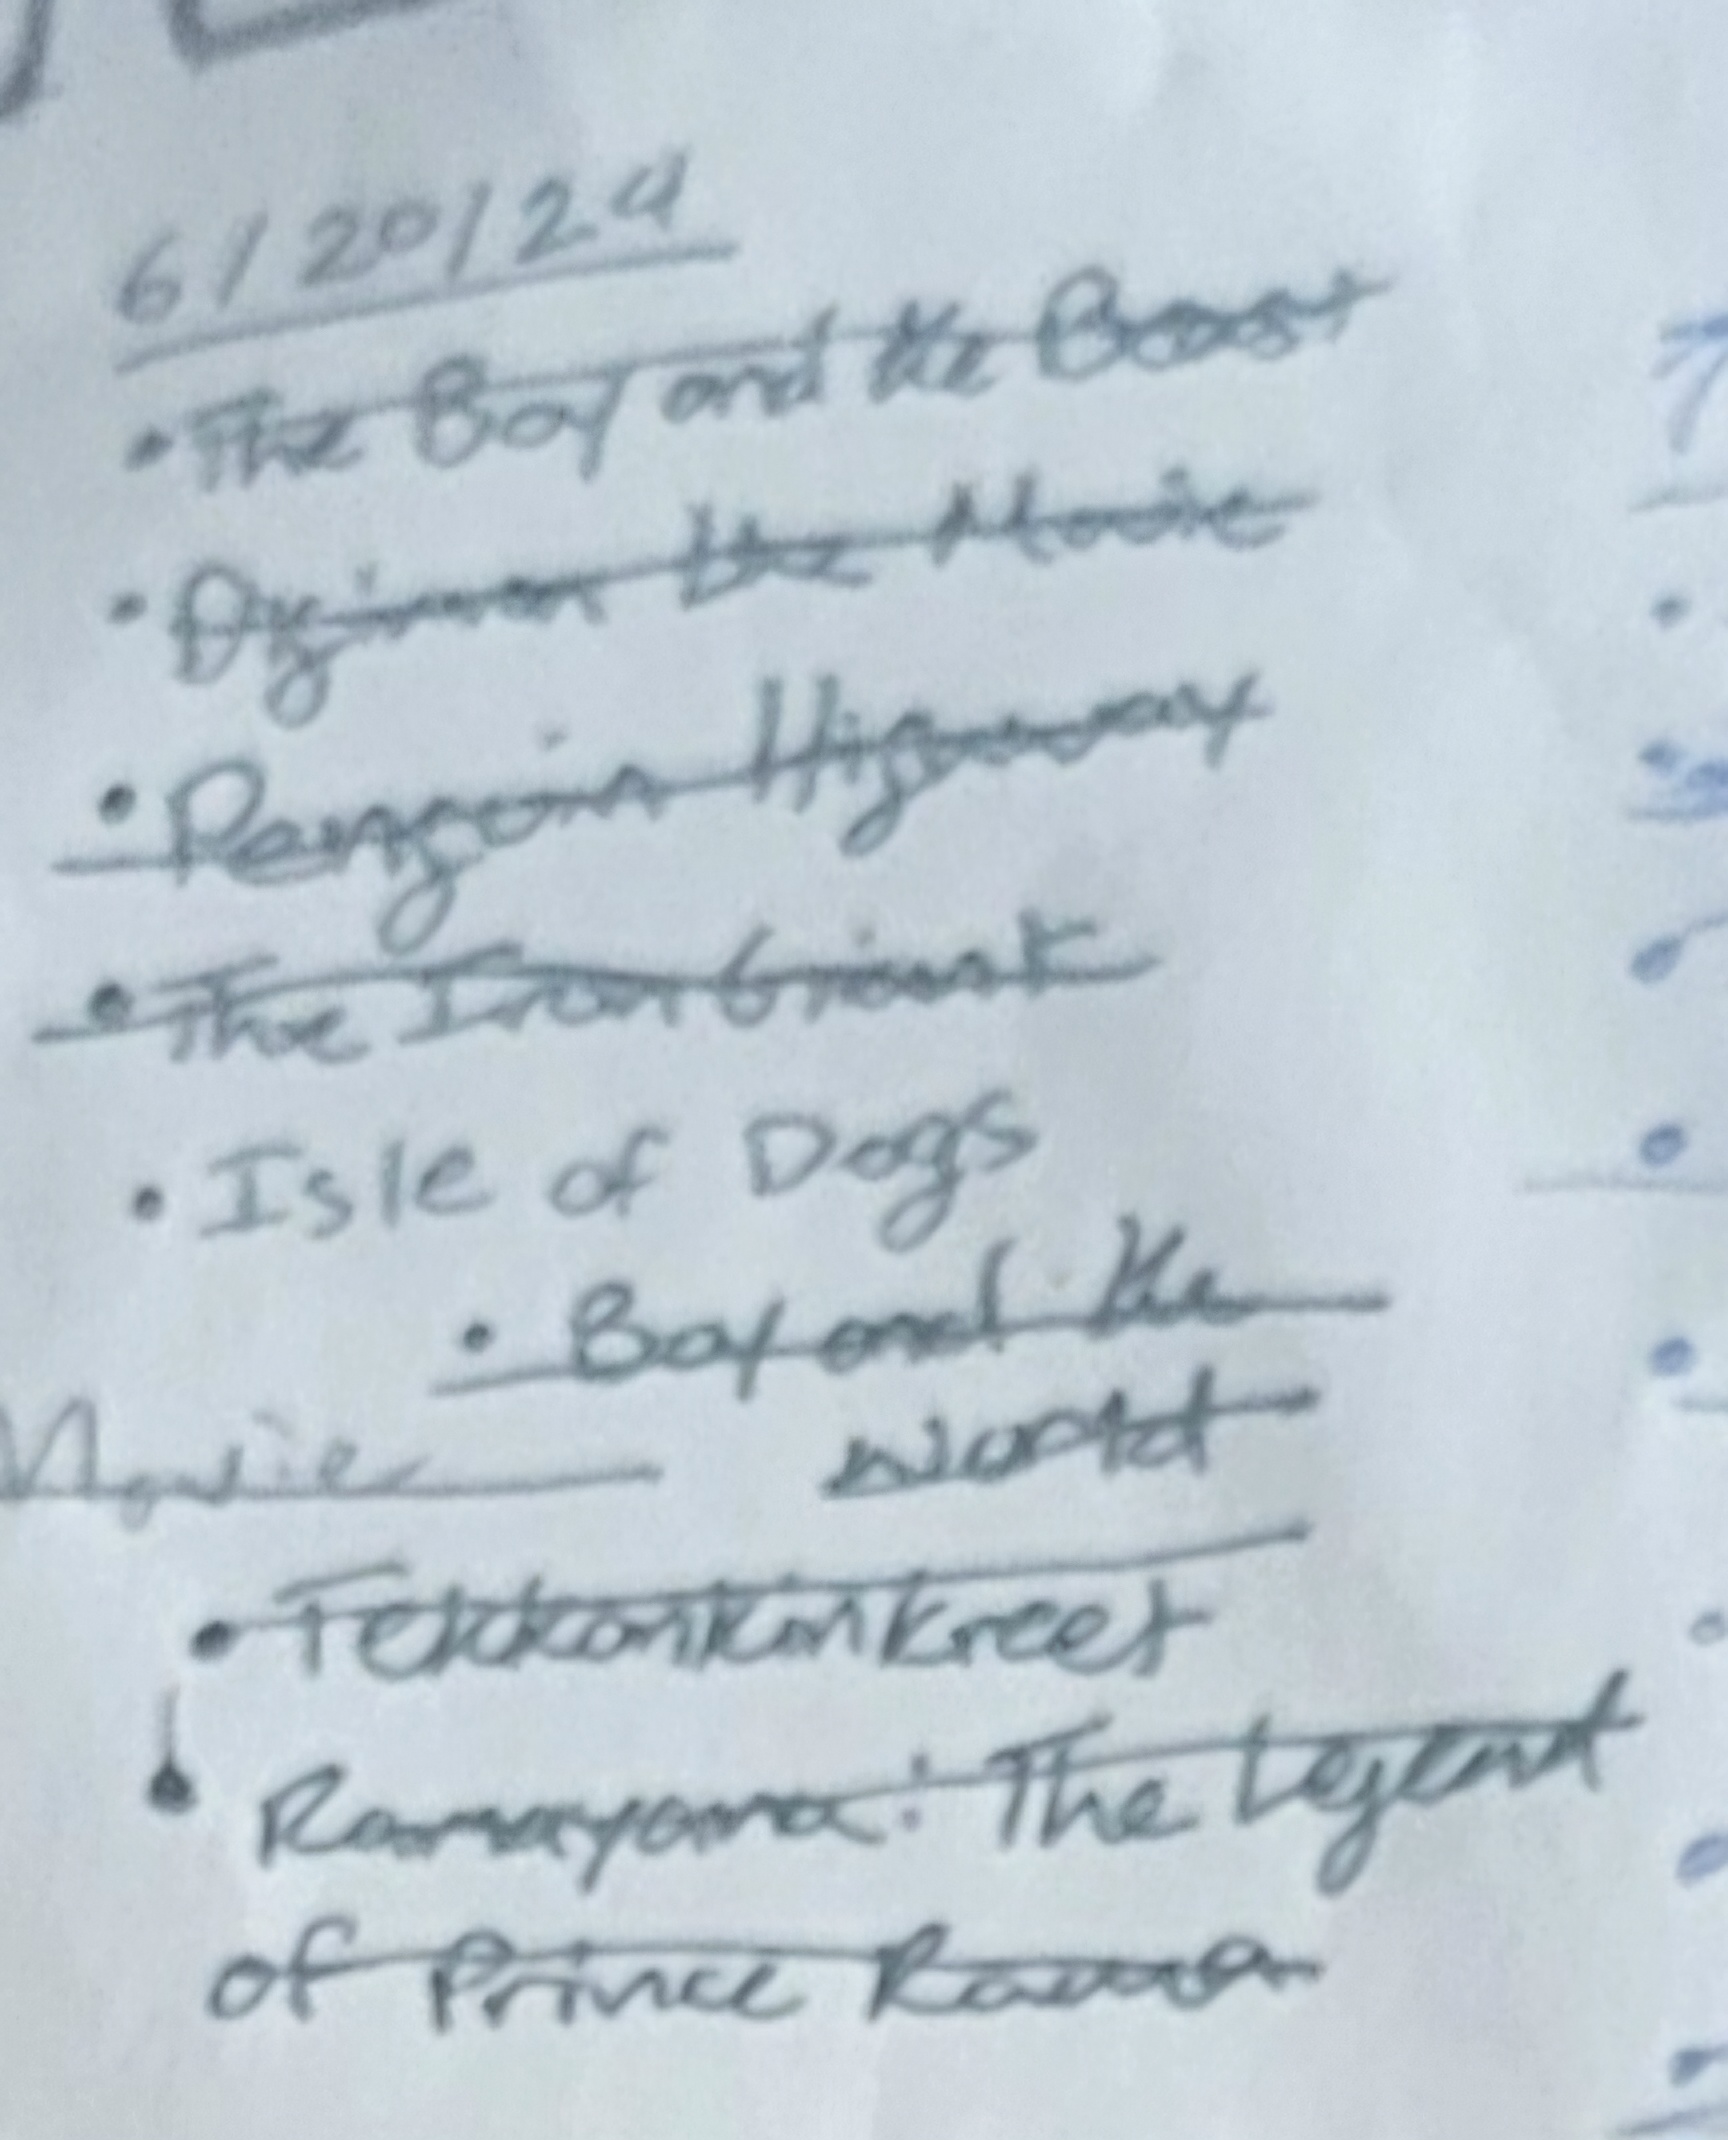 6/20/24
• The Boy and the Beast
• Digimon the Movie
• Penguin Higway
• The Iron Giant
• Isle of Dogs
• Boy and the
Movie
World
• Tekkonkinkreet
• Ramayana: The Legend
of Prince Rama